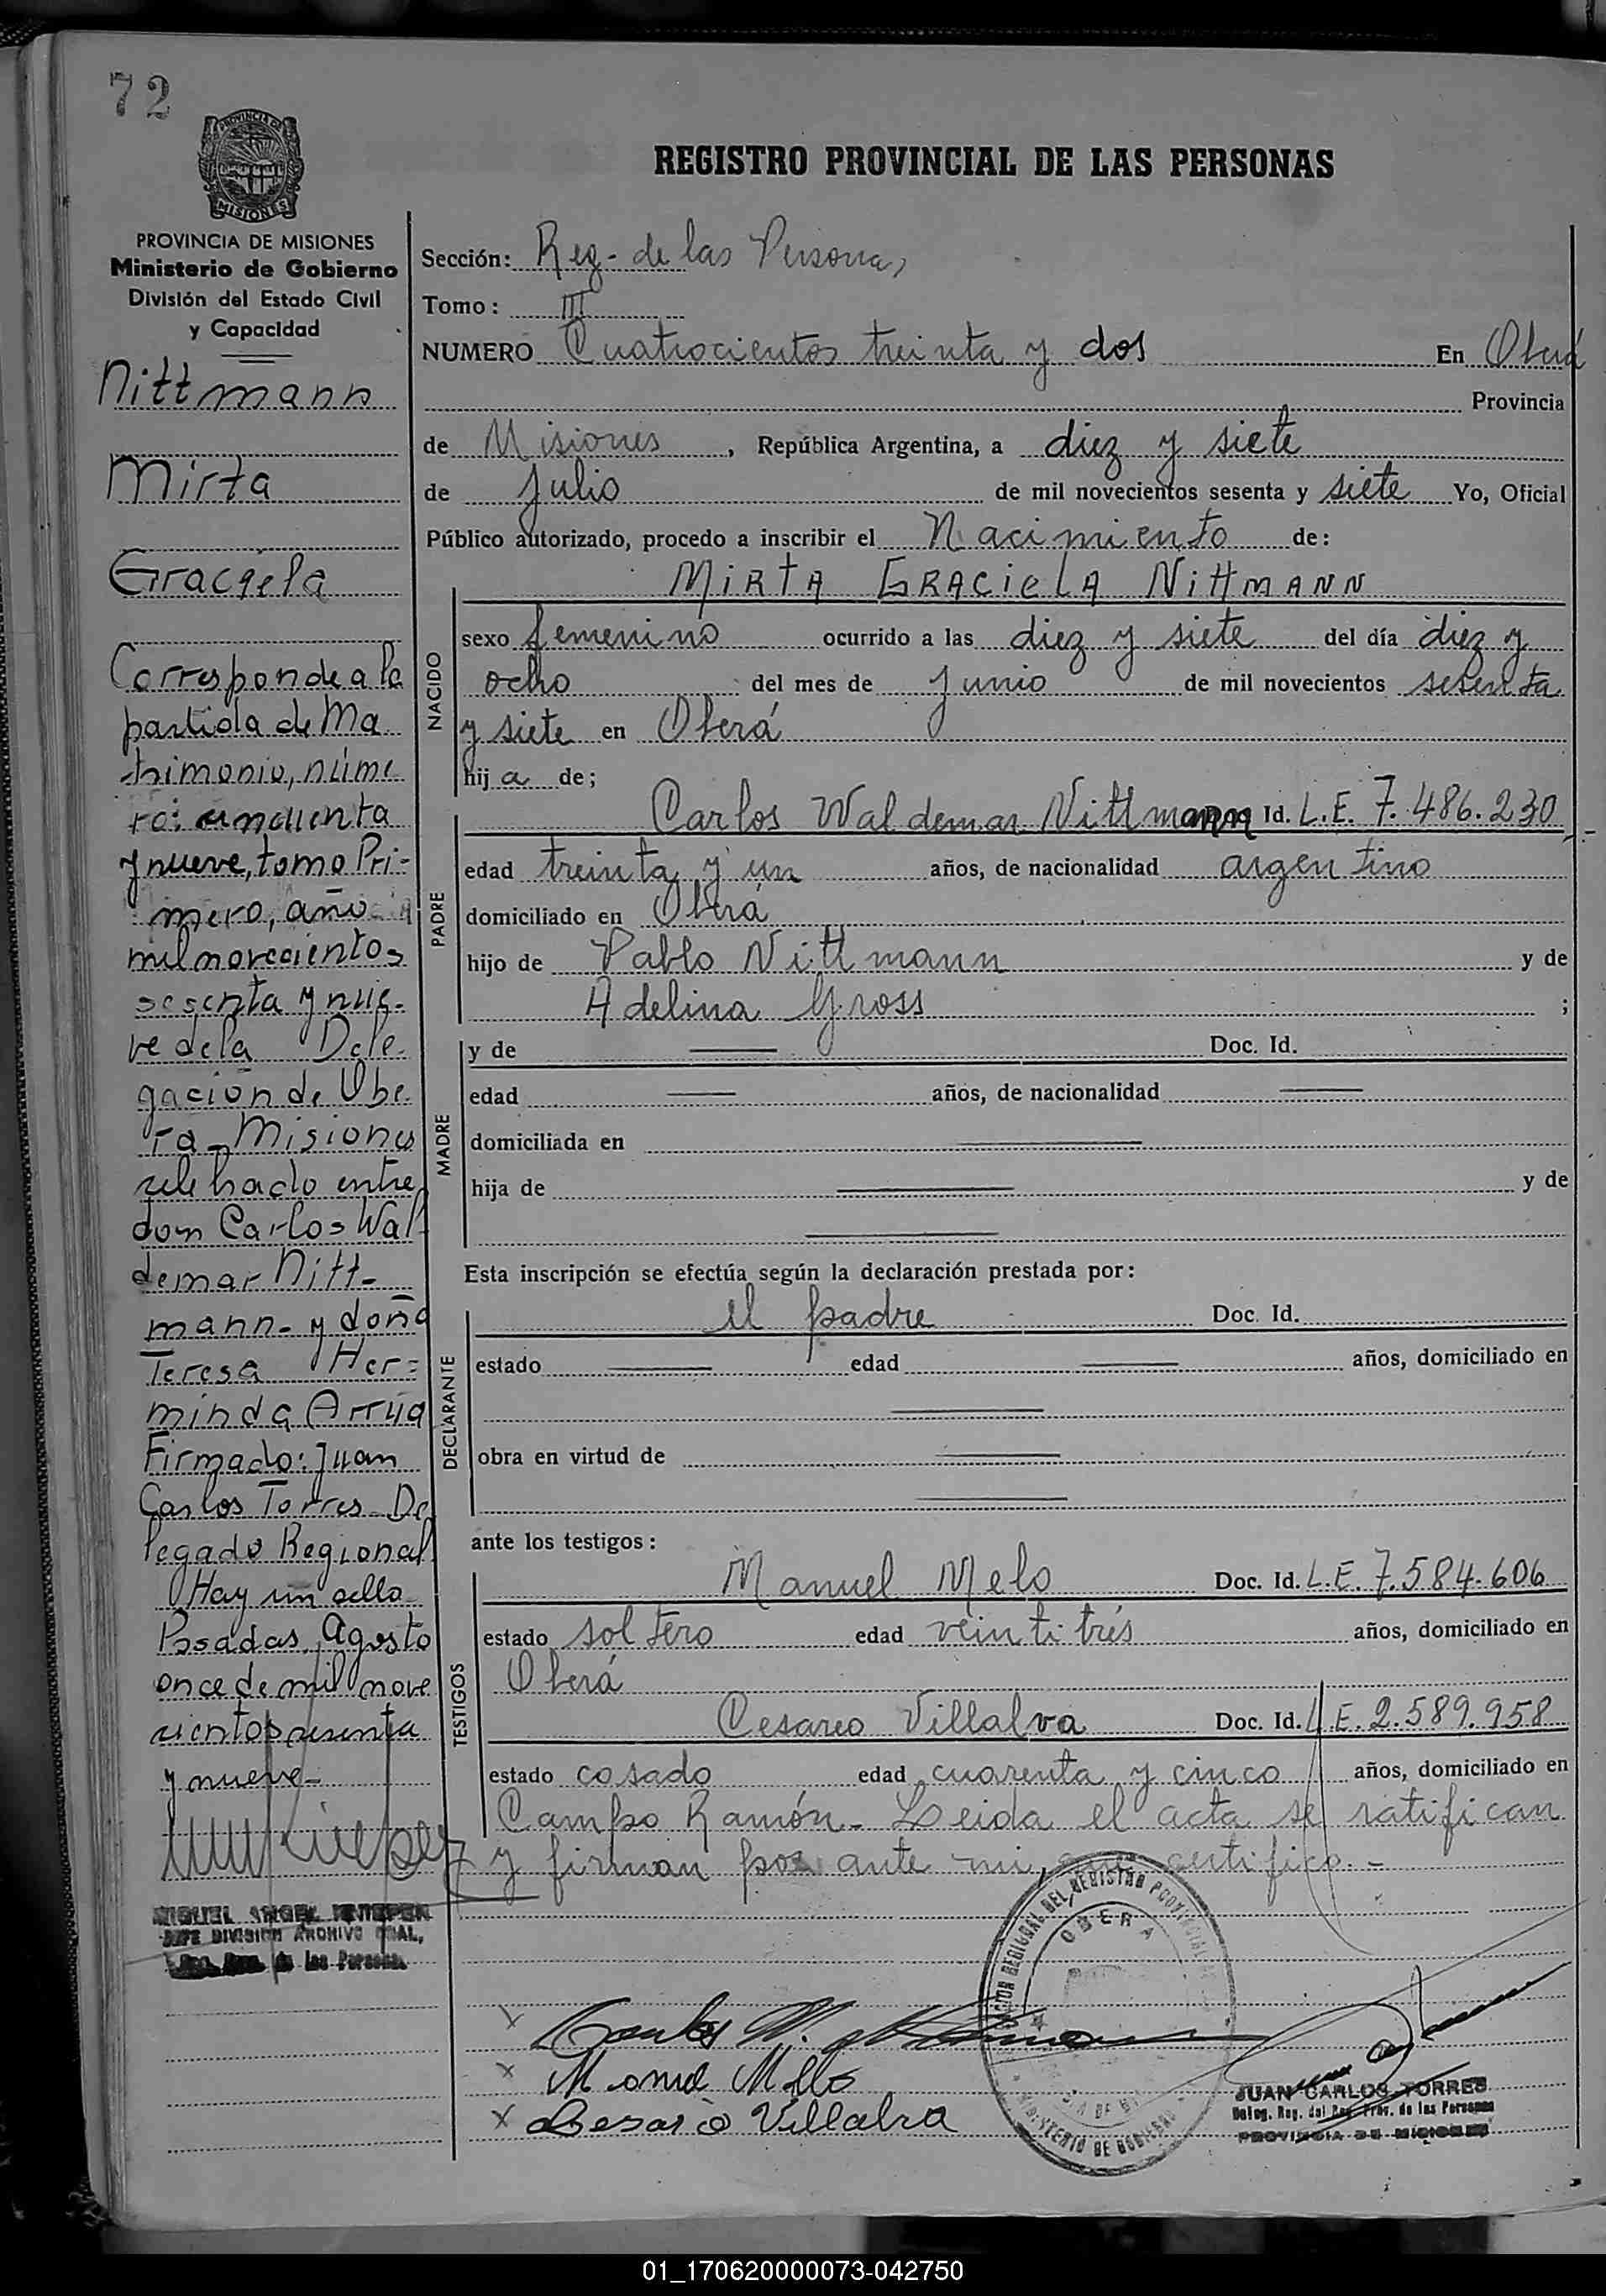 72
PROVINCIA DE MISIONES
REGISTRO PROVINCIAL DE LAS PERSONAS
PROVINCIA DE MISIONES
Ministerio de Gobierno
División del Estado Civil
y Capacidad
Nittmann
Mirta
Graciela
Corresponde a la
partida de Ma
trimonio, núme
ro: cincuenta
y nueve, tomo Pri-
mero, año
mil novecientos
sesenta y nue-
ve de la Dele-
gación de Obe-
rá - Misiones
celebrado entre
don Carlos Wal
demar Nitt-
mann - y doña
Teresa Her=
minda Arrúa
Firmado: Juan
Carlos Torres - De
legado Regional.
Hay un sello
Posadas, Agosto
once de mil nove
cientos sesenta
y nueve -
MIGUEL ANGEL
JEFE DIVISION ARCHIVO GRAL.
de las Personas
Sección: Reg - de las Personas
Tomo: III
NUMERO Cuatrocientos treinta y dos En Oberá
Provincia
de Misiones, República Argentina, a diez y siete
de Julio de mil novecientos sesenta y siete Yo, Oficial
Público autorizado, procedo a inscribir el Nacimiento de:
MIRTA GRACIELA NITTMANN
NACIDO
sexo femenino ocurrido a las diez y siete del día diez y
ocho del mes de Junio de mil novecientos sesenta
y siete en Oberá
hija de;
PADRE
Carlos Waldemar Nittmann Id. L.E. 7.486.230
edad treinta y un años, de nacionalidad argentino
domiciliado en Oberá
hijo de Pablo Nittmann y de
Adelina Gross ;
MADRE
y de — Doc. Id.
edad — años, de nacionalidad —
domiciliada en —
hija de — y de
—
Esta inscripción se efectúa según la declaración prestada por:
DECLARANTE
el padre Doc. Id.
estado — edad — años, domiciliado en
—
obra en virtud de —
—
ante los testigos:
TESTIGOS
Manuel Melo Doc. Id. L.E. 7.584.606
estado soltero edad veintitrés años, domiciliado en
Oberá
Cesareo Villalva Doc. Id. L.E. 2.589.958
estado casado edad cuarenta y cinco años, domiciliado en
Campo Ramón - Leida el acta se ratifican
y firman por ante mi, que certifico. -
OBERA
MINISTERIO DE GOBIERNO
x Carlos W. Nittmann
x Manuel Mello
x Cesario Villalva
JUAN CARLOS TORRES
Deleg. Reg. del Reg. Prov. de las Personas
PROVINCIA DE MISIONES
01_170620000073-042750